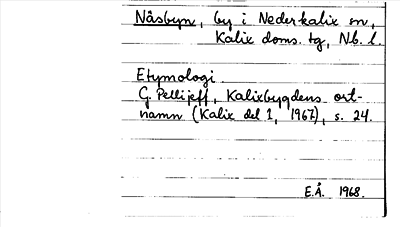 Nåsbyn, by i Nederkalix sn,
Kalix doms. tg, Nb. l.
Etymologi.
G. Pellijeff, Kalixbygdens ort-
namn (Kalix del 1, 1967), s. 24.
E.Å. 1968.